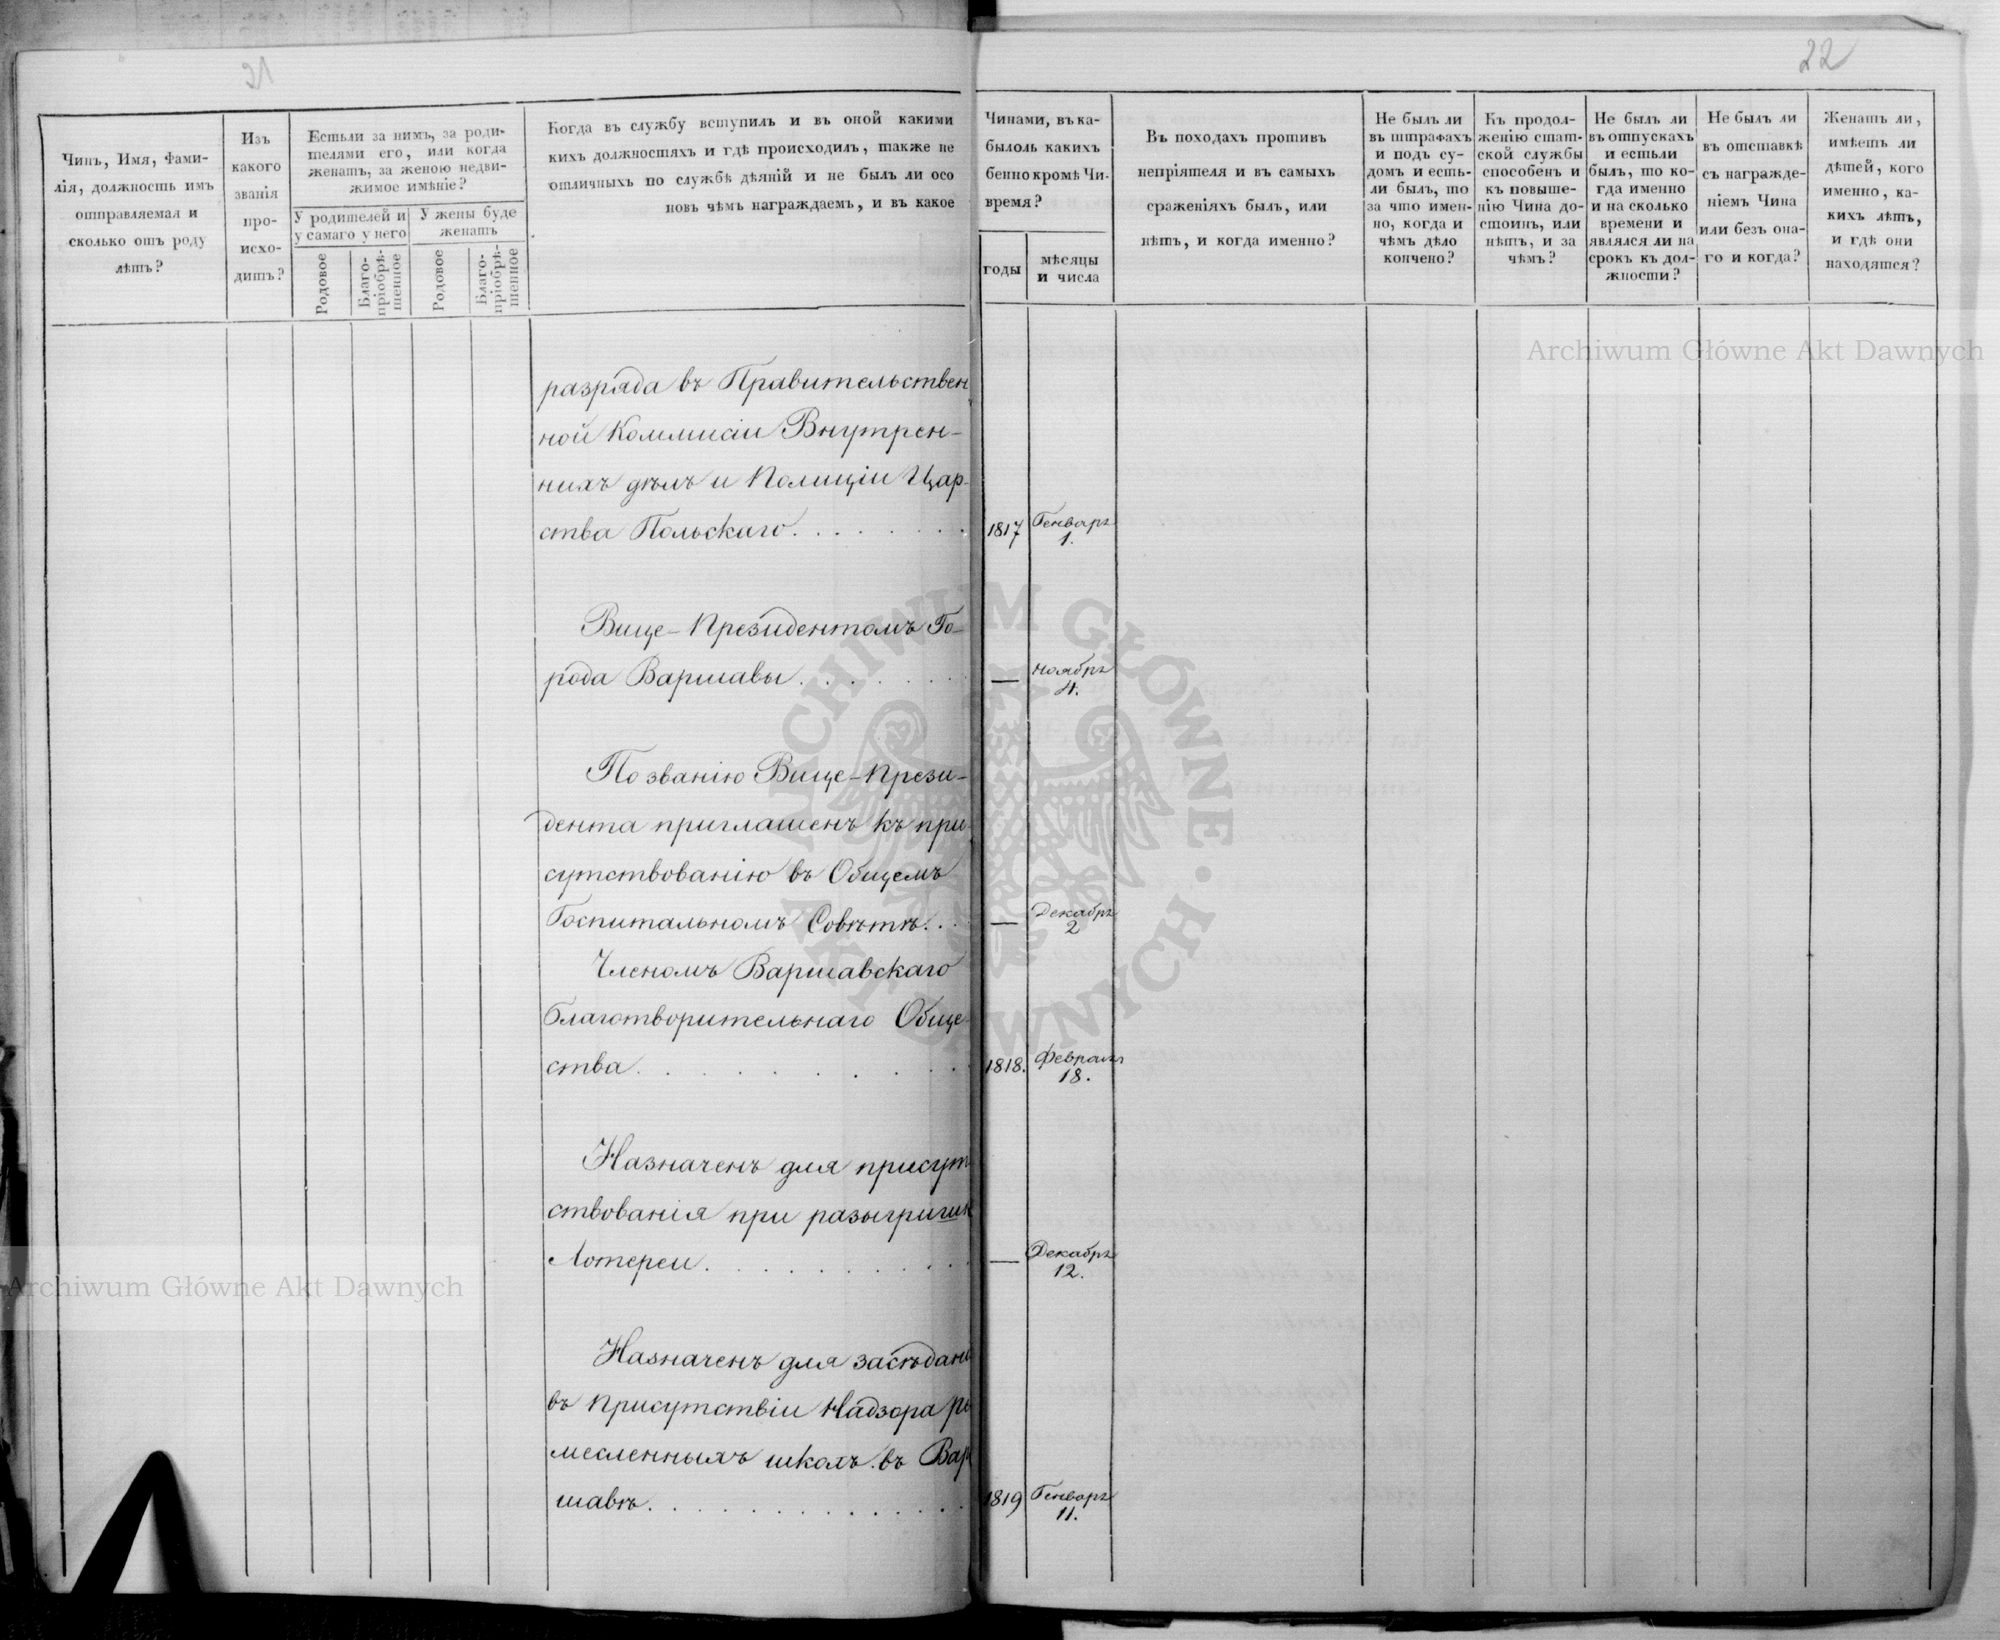 21
22
Чинъ, Имя, Фами-
лія, должность имъ
отправляемая и
сколько отъ роду
лѣтъ?
Изъ
какого
званія
про-
исхо-
дитъ?
Естьли за нимъ, за роди-
телями его, или когда
женатъ, за женою недви-
жимое имѣніе?
У родителей и
у самаго у него
У жены буде
женатъ
Родовое
Благо-
пріобрѣ-
тенное
Родовое
Благо-
пріобрѣ-
тенное
Когда въ службу вступилъ и въ оной какими
кихъ должностяхъ и гдѣ происходилъ, также не
отличныхъ по службѣ дѣяній и не былъ ли осо
новъ чѣмъ награждаемъ, и въ какое
Чинами, въ ка-
былоль какихъ
бенно кромѣ Чи-
время?
годы
мѣсяцы
и числа
Въ походахъ противъ
непріятеля и въ самыхъ
сраженіяхъ былъ, или
нѣтъ, и когда именно?
Не былъ ли
въ штрафахъ
и подъ су-
домъ и есть-
ли былъ, то
за что имен-
но, когда и
чѣмъ дѣло
кончено?
Къ продол-
женію стат-
ской службы
способенъ и
къ повыше-
нію Чина до-
стоинъ, или
нѣтъ, и за
чѣмъ?
Не былъ ли
въ отпускахъ
и естьли
былъ, то ко-
гда именно
и на сколько
времени и
являлся ли на
срокъ къ дол-
жности?
Не былъ ли
въ отставкѣ
съ награжде-
ніемъ Чина
или безъ она-
го и когда?
Женатъ ли,
имѣетъ ли
дѣтей, кого
именно, ка-
кихъ лѣтъ,
и гдѣ они
находятся?
разряда въ Правительствен
ной Коммисіи Внутрен-
нихъ дѣлъ и Полиціи Цар-
ства Польскаго . . . . . . . 1817 Генваря 1.
Вице-Президентомъ Го-
рода Варшавы . . . . . . . — Ноября 4.
По званію Вице-Прези-
дента приглашенъ къ при-
сутствованію въ Общемъ
Госпитальномъ Совѣтѣ . . . — Декабря 2
Членомъ Варшавскаго
Благотворительнаго Обще-
ства . . . . . . . 1818. Февраля 18.
Назначенъ для присут
ствованія при разыгриши
Лотереи . . . . . . . — Декабря 12.
Назначенъ для засѣдані
въ Присутствіи Надзора ре
месленныхъ школъ въ Вар
шавѣ . . . . . . . 1819 Генваря 11.
Archiwum Główne Akt Dawnych
Archiwum Główne Akt Dawnych
ARCHIWUM GŁÓWNE · AKT DAWNYCH ·